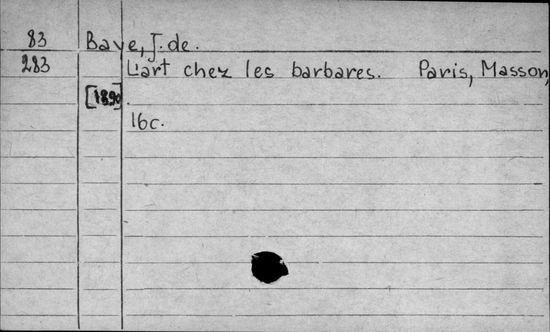 83 Baye, J. de.
283 L'art chez les barbares. Paris, Masson,
[1890].
16c.